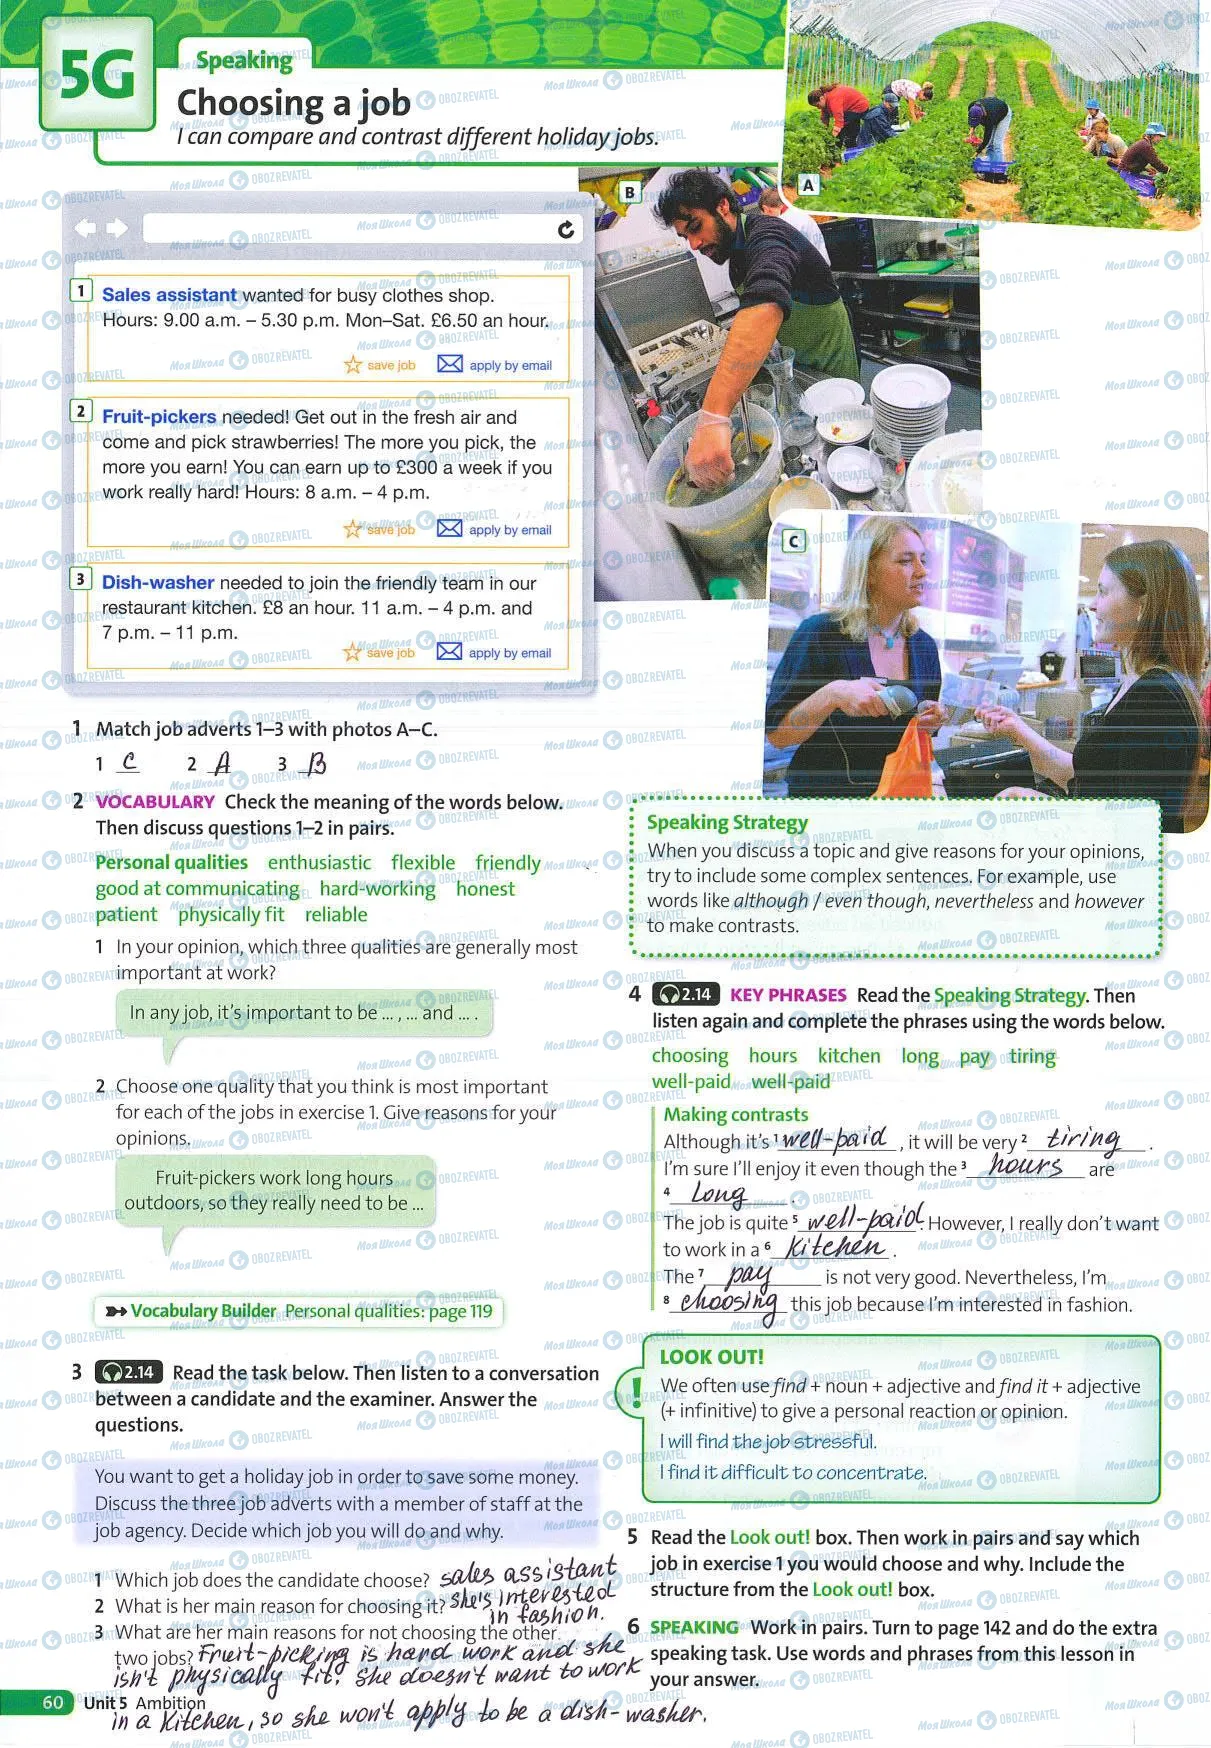 5G
Speaking
Choosing a job
I can compare and contrast different holiday jobs.
A
B
C
1 Sales assistant wanted for busy clothes shop.
Hours: 9.00 a.m. – 5.30 p.m. Mon–Sat. £6.50 an hour.
save job apply by email
2 Fruit-pickers needed! Get out in the fresh air and
come and pick strawberries! The more you pick, the
more you earn! You can earn up to £300 a week if you
work really hard! Hours: 8 a.m. – 4 p.m.
save job apply by email
3 Dish-washer needed to join the friendly team in our
restaurant kitchen. £8 an hour. 11 a.m. – 4 p.m. and
7 p.m. – 11 p.m.
save job apply by email
1 Match job adverts 1–3 with photos A–C.
1 C 2 A 3 B
2 VOCABULARY Check the meaning of the words below.
Then discuss questions 1–2 in pairs.
Personal qualities enthusiastic flexible friendly
good at communicating hard-working honest
patient physically fit reliable
1 In your opinion, which three qualities are generally most
important at work?
In any job, it's important to be ... , ... and ... .
2 Choose one quality that you think is most important
for each of the jobs in exercise 1. Give reasons for your
opinions.
Fruit-pickers work long hours
outdoors, so they really need to be ...
Vocabulary Builder Personal qualities: page 119
3 2.14 Read the task below. Then listen to a conversation
between a candidate and the examiner. Answer the
questions.
You want to get a holiday job in order to save some money.
Discuss the three job adverts with a member of staff at the
job agency. Decide which job you will do and why.
1 Which job does the candidate choose? sales assistant
2 What is her main reason for choosing it? she's interested
in fashion.
3 What are her main reasons for not choosing the other
two jobs? Fruit-picking is hard work and she
isn't physically fit. She doesn't want to work
in a kitchen, so she won't apply to be a dish-washer.
60 Unit 5 Ambition
Speaking Strategy
When you discuss a topic and give reasons for your opinions,
try to include some complex sentences. For example, use
words like although / even though, nevertheless and however
to make contrasts.
4 2.14 KEY PHRASES Read the Speaking Strategy. Then
listen again and complete the phrases using the words below.
choosing hours kitchen long pay tiring
well-paid well-paid
Making contrasts
Although it's 1 well-paid , it will be very 2 tiring .
I'm sure I'll enjoy it even though the 3 hours are
4 long .
The job is quite 5 well-paid. However, I really don't want
to work in a 6 kitchen .
The 7 pay is not very good. Nevertheless, I'm
8 choosing this job because I'm interested in fashion.
LOOK OUT!
! We often use find + noun + adjective and find it + adjective
(+ infinitive) to give a personal reaction or opinion.
I will find the job stressful.
I find it difficult to concentrate.
5 Read the Look out! box. Then work in pairs and say which
job in exercise 1 you would choose and why. Include the
structure from the Look out! box.
6 SPEAKING Work in pairs. Turn to page 142 and do the extra
speaking task. Use words and phrases from this lesson in
your answer.
МояШкола OBOZREVATEL